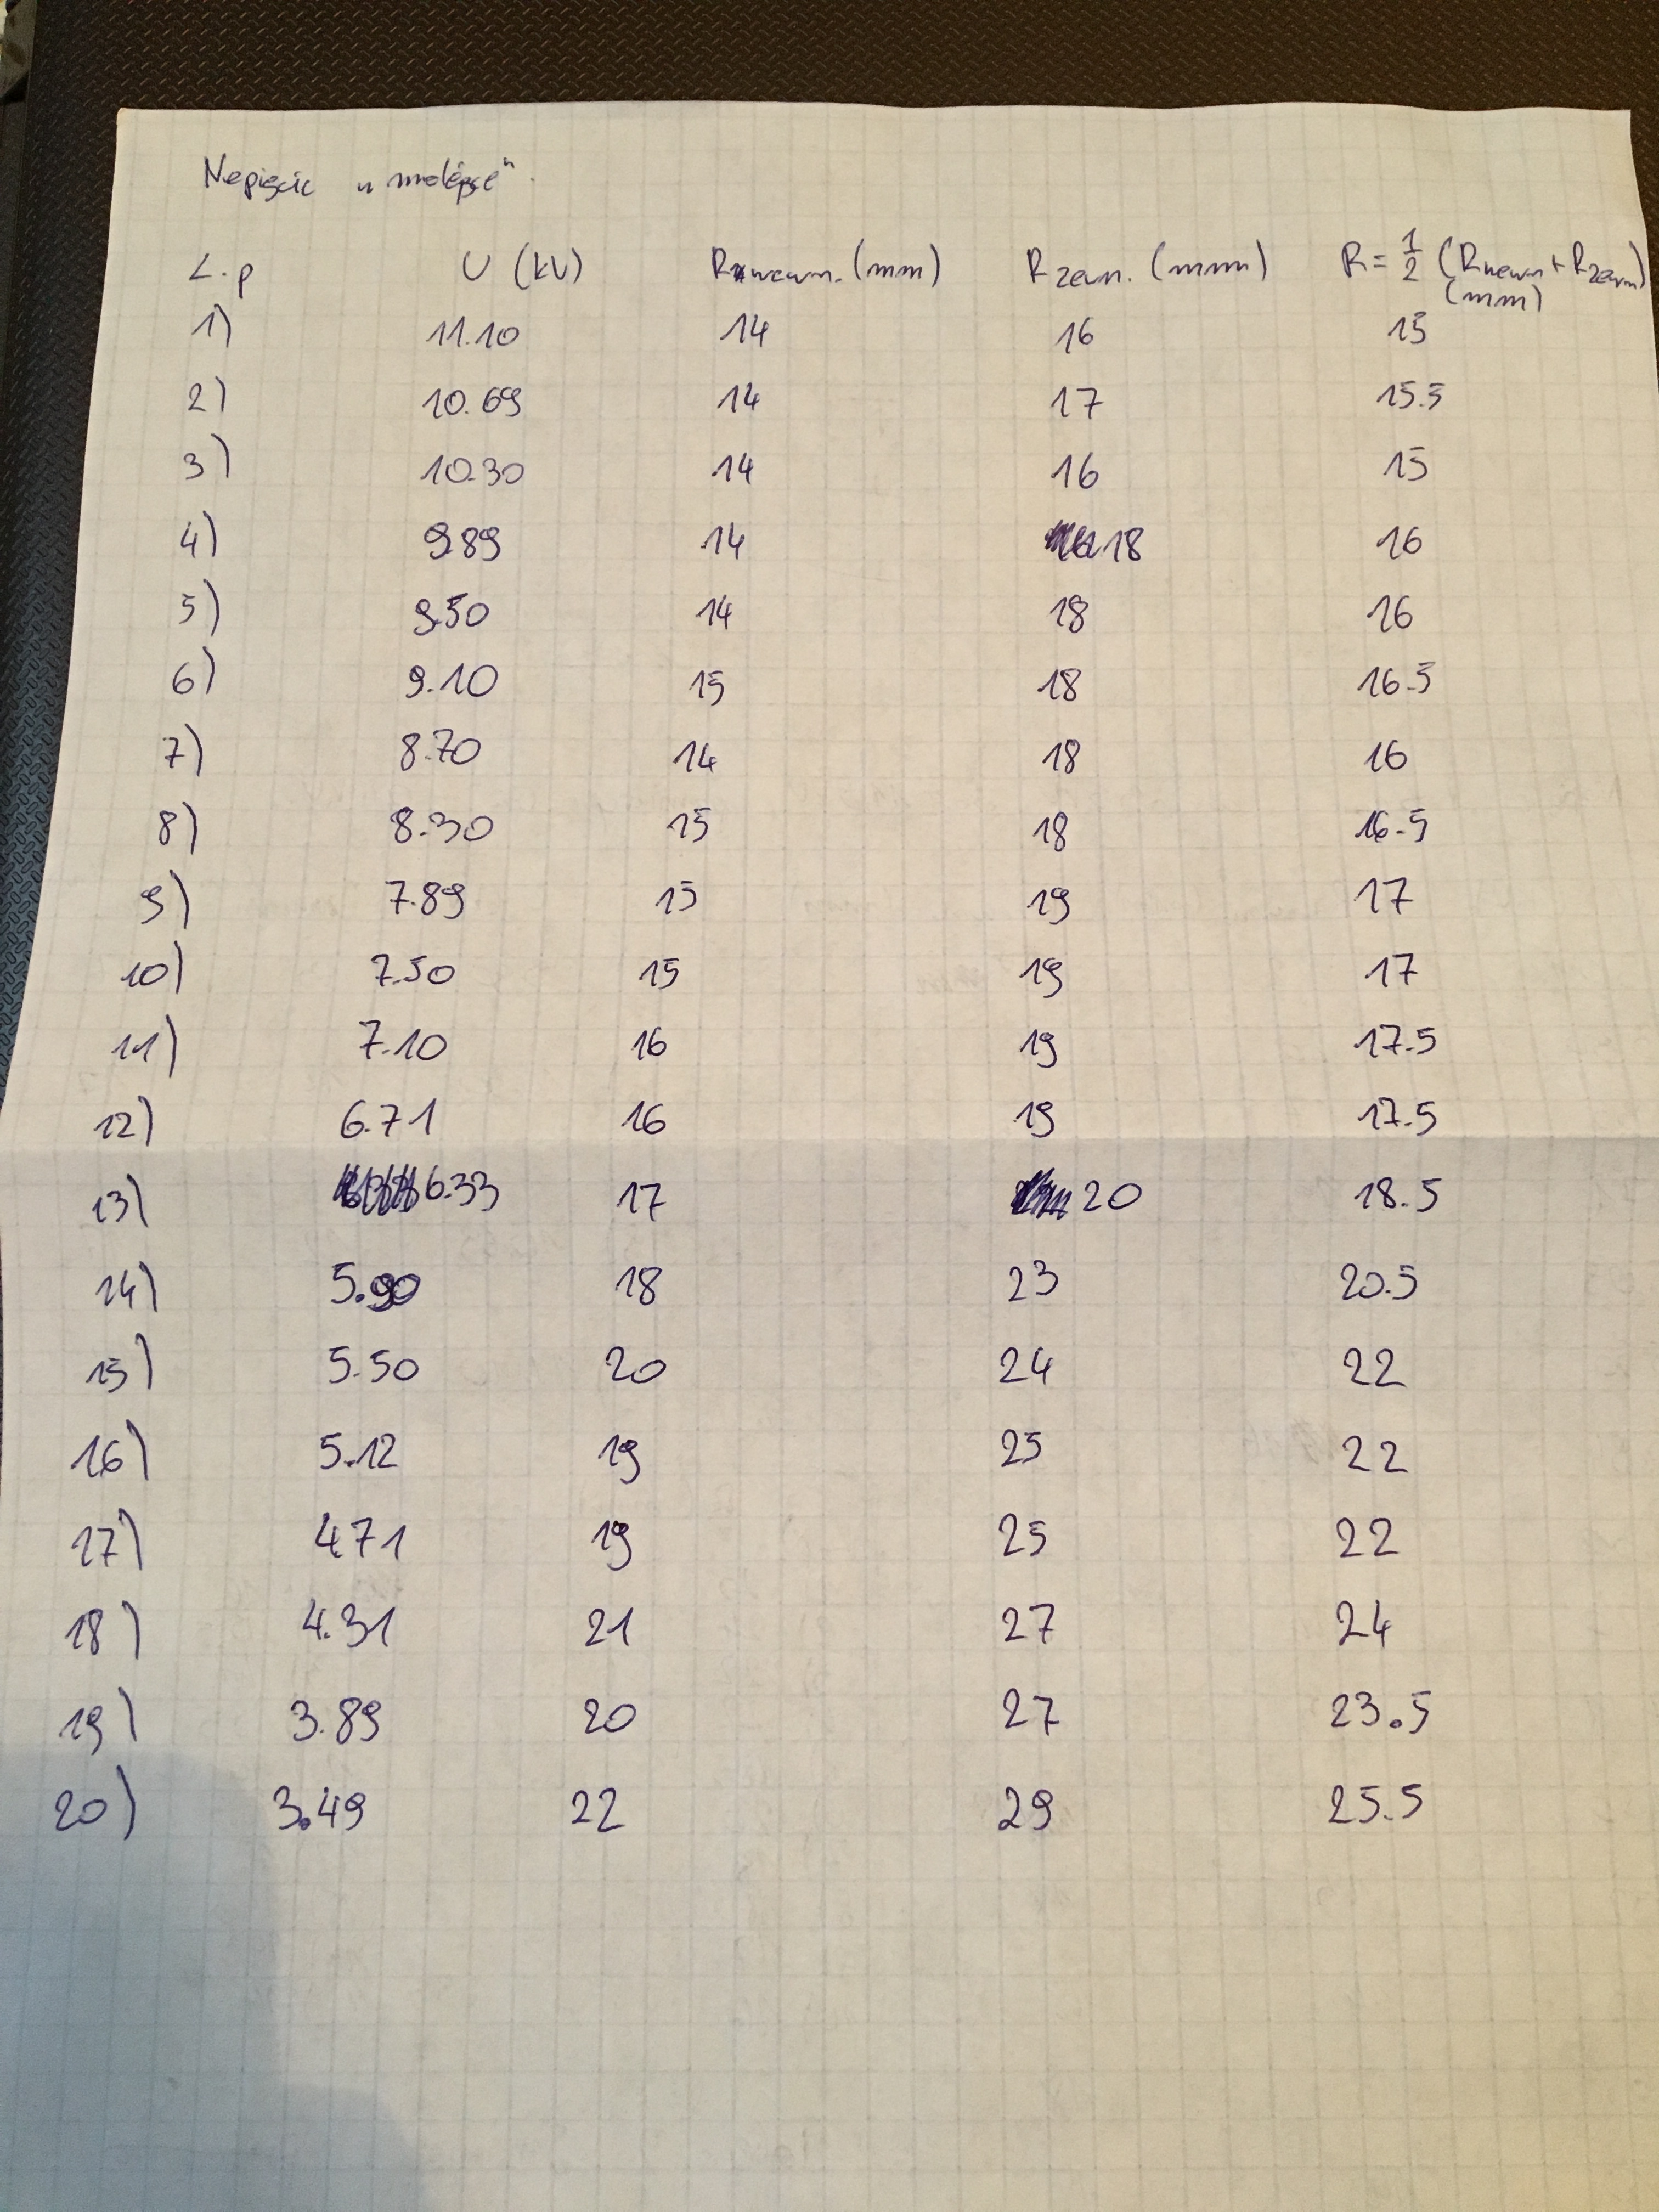 Napięcie „malejące".
L.P U (kV) Rwewn. (mm) Rzewn. (mm) R = 1/2 (Rwewn + Rzewn) (mm)
1) 11.10 14 16 15
2) 10.69 14 17 15.5
3) 10.30 14 16 15
4) 9.89 14 18 16
5) 9.50 14 18 16
6) 9.10 15 18 16.5
7) 8.70 14 18 16
8) 8.30 15 18 16.5
9) 7.89 15 19 17
10) 7.50 15 19 17
11) 7.10 16 19 17.5
12) 6.71 16 19 17.5
13) 6.33 17 20 18.5
14) 5.90 18 23 20.5
15) 5.50 20 24 22
16) 5.12 19 25 22
17) 4.71 19 25 22
18) 4.31 21 27 24
19) 3.89 20 27 23.5
20) 3.49 22 29 25.5